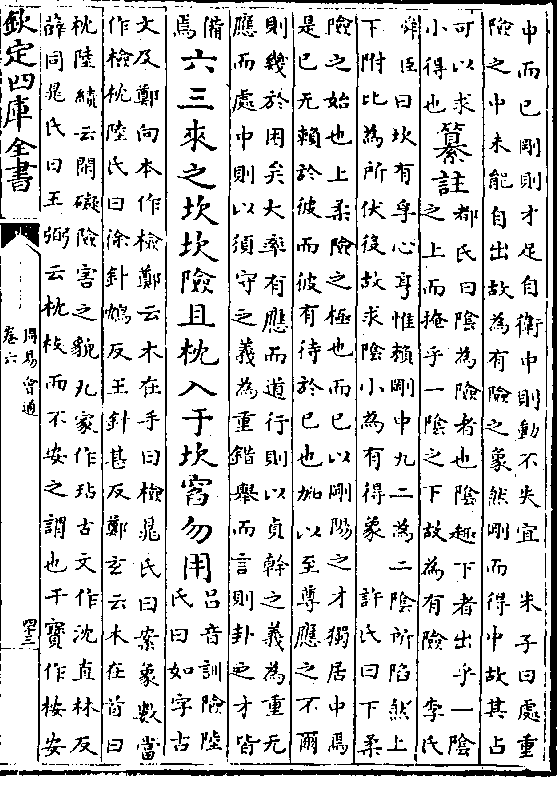 中而已剛則才足自衛中則動不失宜　朱子曰處重
險之中未能自出故為有險之象然剛而得中故其占
可以求
小得也
纂註
都氏曰陰為險者也陰趣下者出乎一陰
之上而掩乎一陰之下故為有險　李氏
舜臣曰坎有孚心亨惟賴剛中九二為二陰所陷然上
下附比為所伏從故求陰小為有得象　許氏曰下柔
險之始也上柔險之極也而已以剛陽之才獨居中焉
是已无賴於彼而彼有待於已也加以至尊應之不爾
則幾於困矣大率有應而道行則以貞幹之義為重无
應而處中則以須守之義為重錯舉而言則卦之才皆
備
焉
六三來之坎坎險且枕入于坎窞勿用
呂音訓險陸
氏曰如字古
文及鄭向本作檢鄭云木在手曰檢晁氏曰案象數當
作檢枕陸氏曰徐針鴆反王針甚反鄭玄云木在首曰
枕陸績云閑礙險害之貌九家作玷古文作沈直林反
薛同晁氏曰王弼云枕枝而不安之謂也干寶作桉安
欽定四庫全書
周易會通
卷六
四三